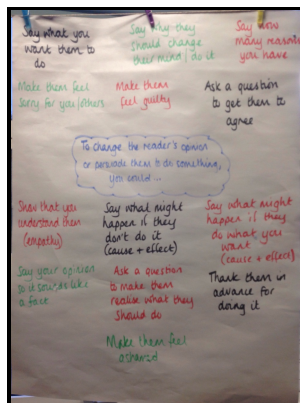 Say what you
want them to
do
Say why they
should change
their mind / do it
Say how
many reasons
you have
Make them feel
sorry for you/others
Make them
feel guilty
Ask a question
to get them to
agree
To change the reader's opinion
or persuade them to do something,
you could ...
Show that you
understand them
(empathy)
Say what might
happen if they
don't do it
(cause + effect)
Say what might
happen if they
do what you
want
(cause + effect)
Say your opinion
so it sounds like
a fact
Ask a question
to make them
realise what they
should do
Thank them in
advance for
doing it
Make them feel
ashamed